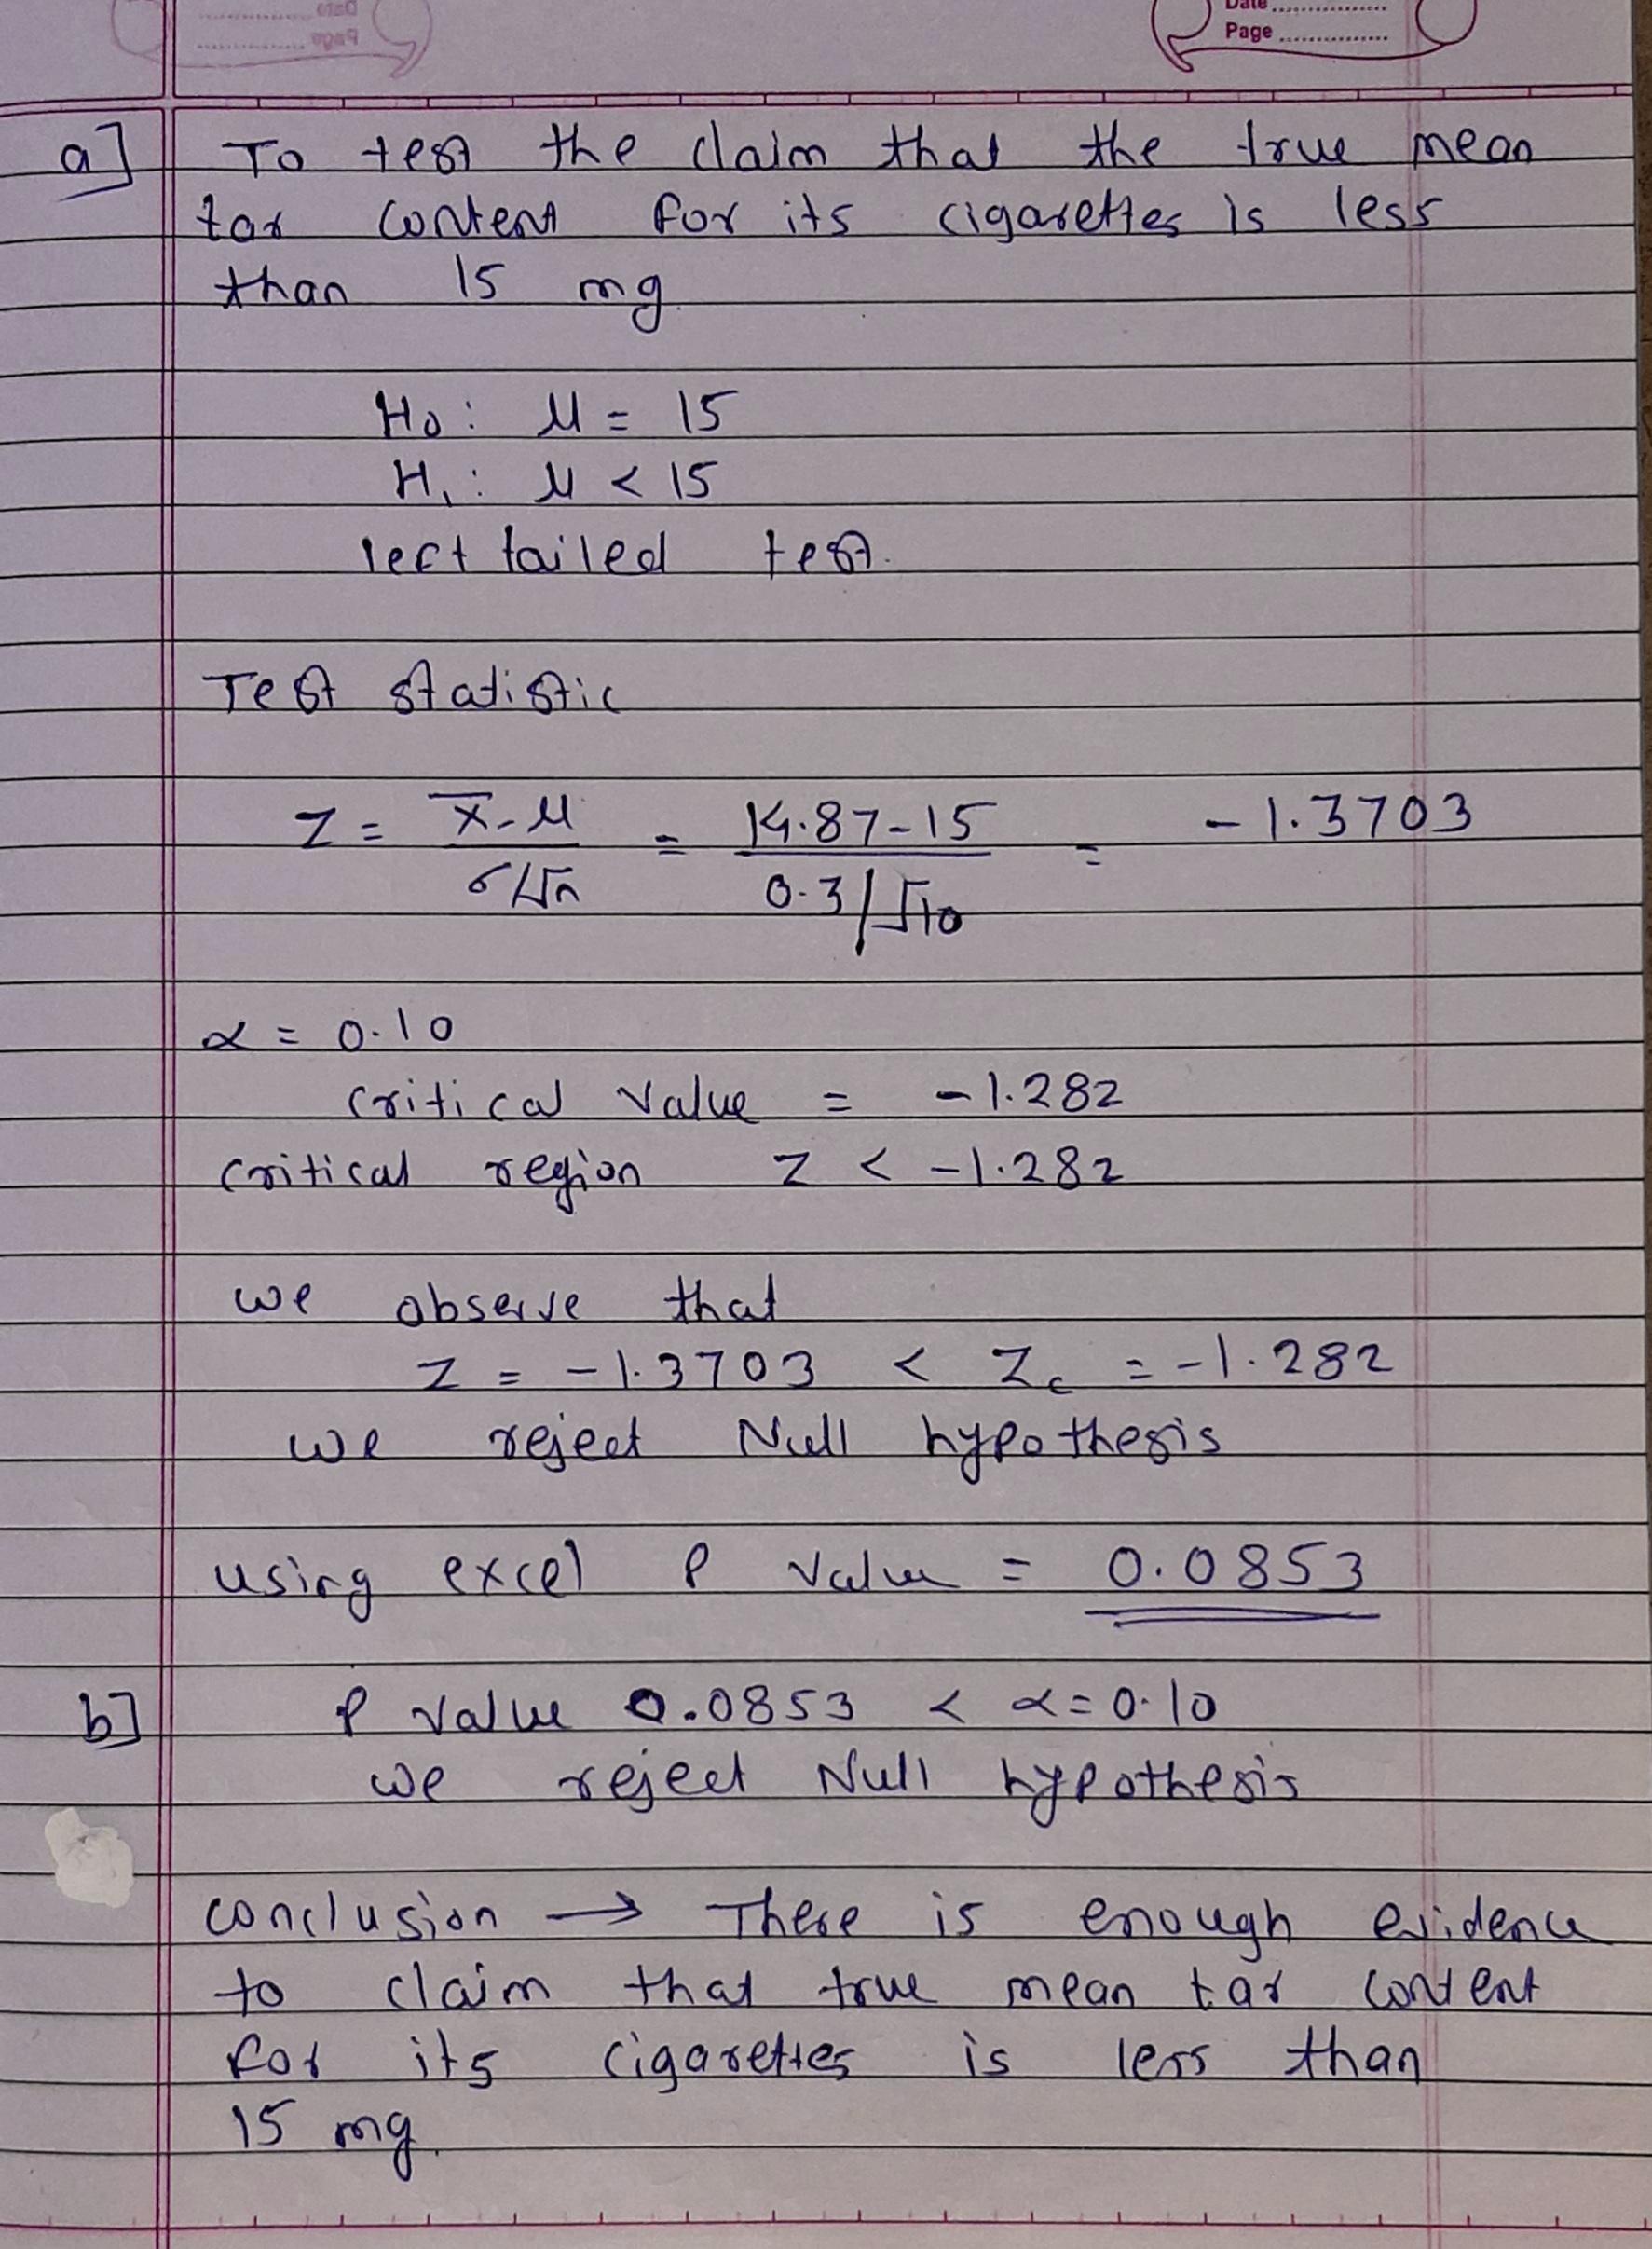 Date
Page
a] To test the claim that the true mean
tar content for its cigarettes is less
than 15 mg.
H₀: μ = 15
H₁: μ < 15
left tailed test.
Test statistic
Z = x̄-μ / σ/√n = 14.87-15 / 0.3/√10 = -1.3703
α = 0.10
critical value = -1.282
critical region Z < -1.282
we observe that
Z = -1.3703 < Zc = -1.282
we reject Null hypothesis
using excel P value = 0.0853
b] P value 0.0853 < α = 0.10
we reject Null hypothesis
conclusion → There is enough evidence
to claim that true mean tar content
for its cigarettes is less than
15 mg.